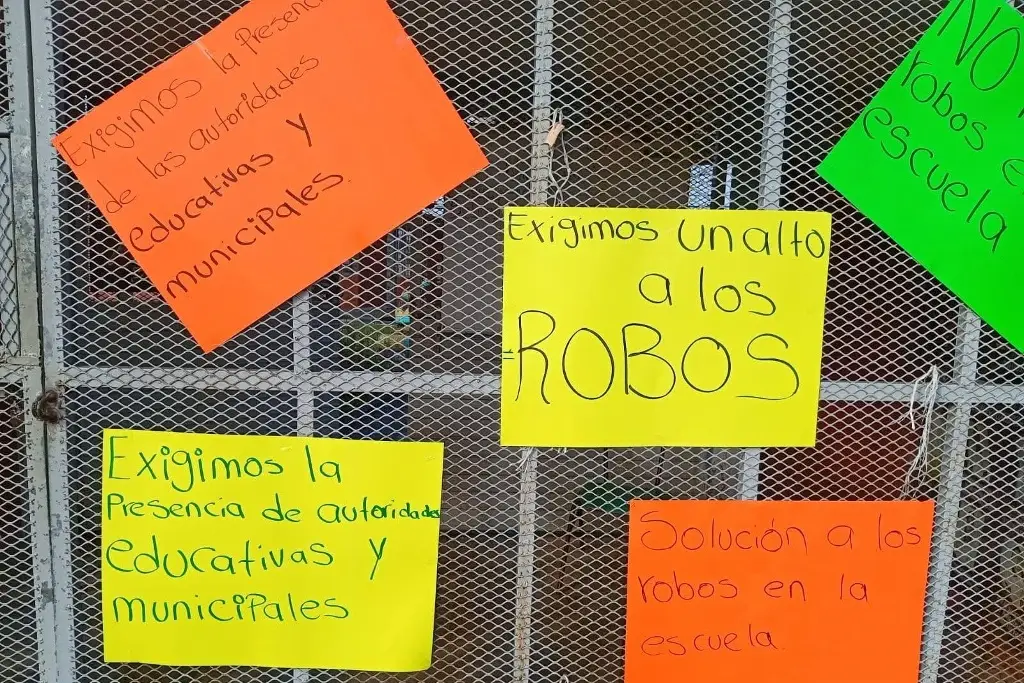 Exigimos la Presenc
de las autoridades
educativas y
municipales.
NO
robos e
escuela
Exigimos un alto
a los
ROBOS
Exigimos la
Presencia de autoridades
educativas y
municipales
Solución a los
robos en la
escuela.